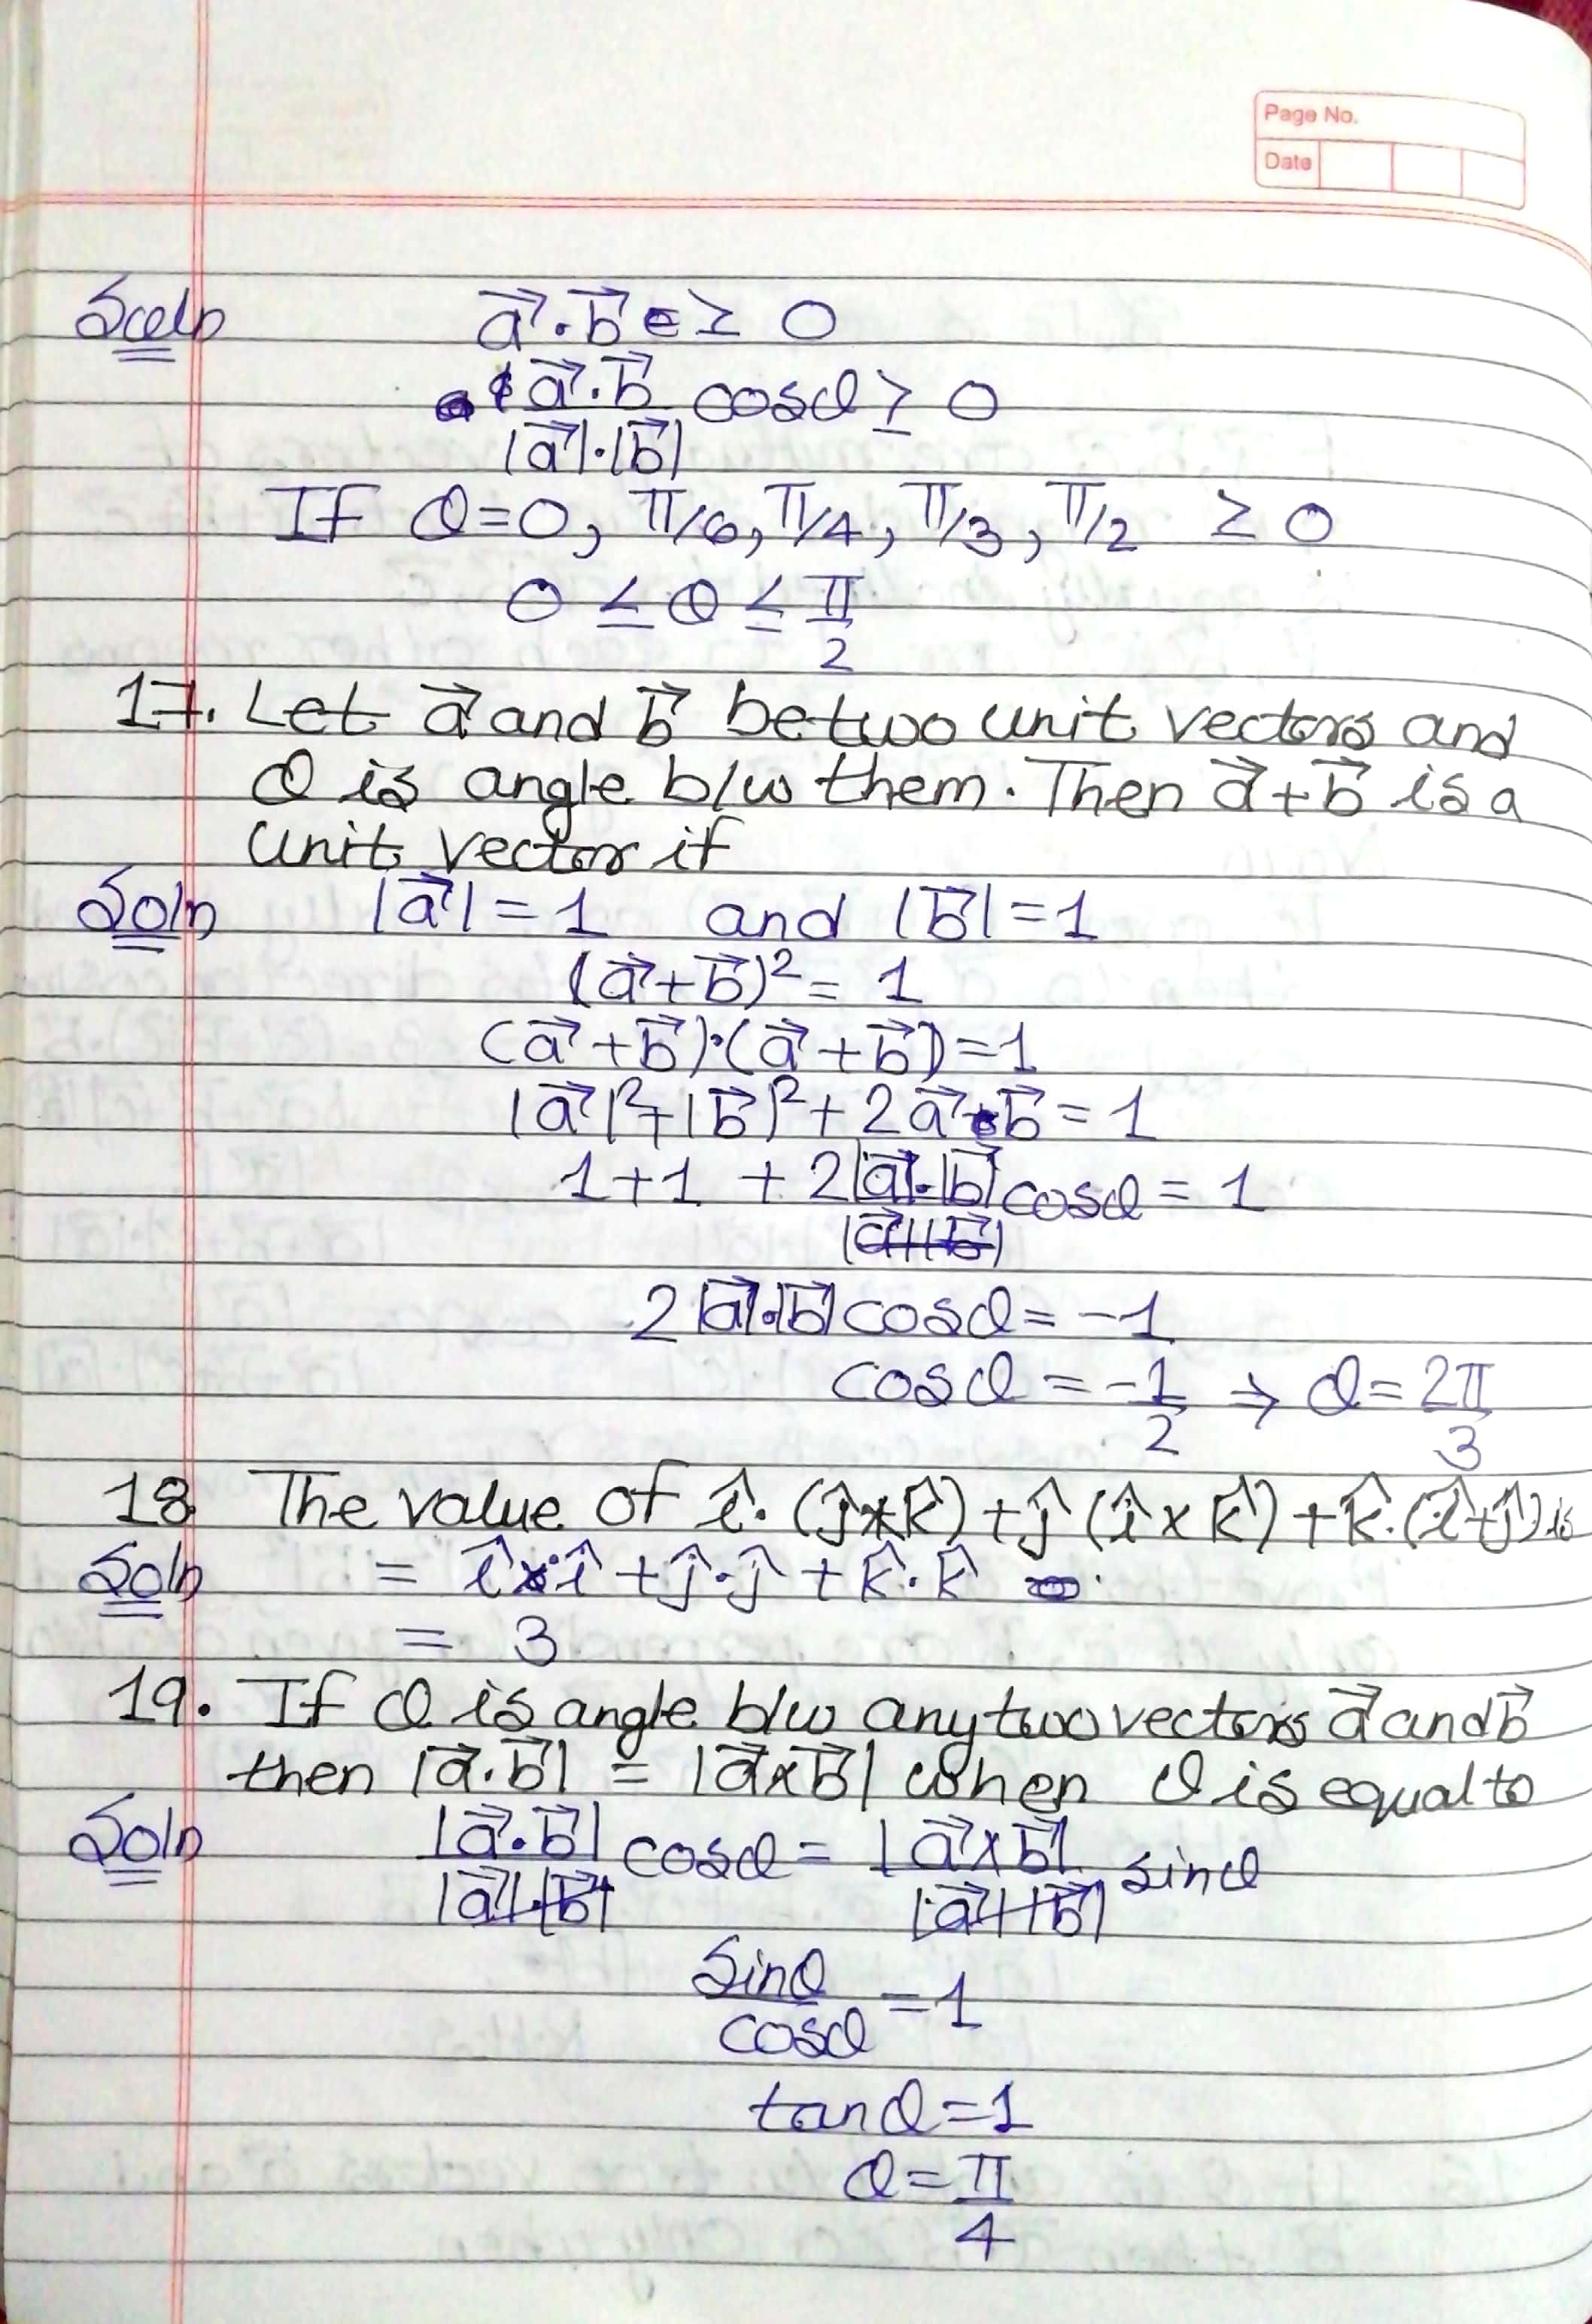 Page No.
Date
Soln a⃗.b⃗ ≥ 0
a⃗.b⃗ cosθ ≥ 0
|a⃗|.|b⃗|
If θ=0, π/6, π/4, π/3, π/2 ≥ 0
0 ≤ θ ≤ π/2
17. Let a⃗ and b⃗ be two unit vectors and
θ is angle b/w them. Then a⃗+b⃗ is a
unit vector if
Soln |a⃗|=1 and |b⃗|=1
(a⃗+b⃗)²= 1
(a⃗+b⃗).(a⃗+b⃗)=1
|a⃗|²+|b⃗|²+2a⃗.b⃗=1
1+1 +2|a⃗|.|b⃗|cosθ=1
|a⃗||b⃗|
2|a⃗|.|b⃗|cosθ=-1
cosθ=-1/2 ⇒ θ=2π/3
18 The value of î.(ĵ×k̂)+ĵ(î×k̂)+k̂.(î+ĵ) is
Soln = î.î+ĵ.ĵ+k̂.k̂
= 3
19. If θ is angle b/w any two vectors a⃗ and b⃗
then |a⃗.b⃗| = |a⃗×b⃗| when θ is equal to
Soln |a⃗.b⃗| cosθ= |a⃗×b⃗| sinθ
|a⃗|.|b⃗| |a⃗||b⃗|
sinθ/cosθ=1
tanθ=1
θ=π/4